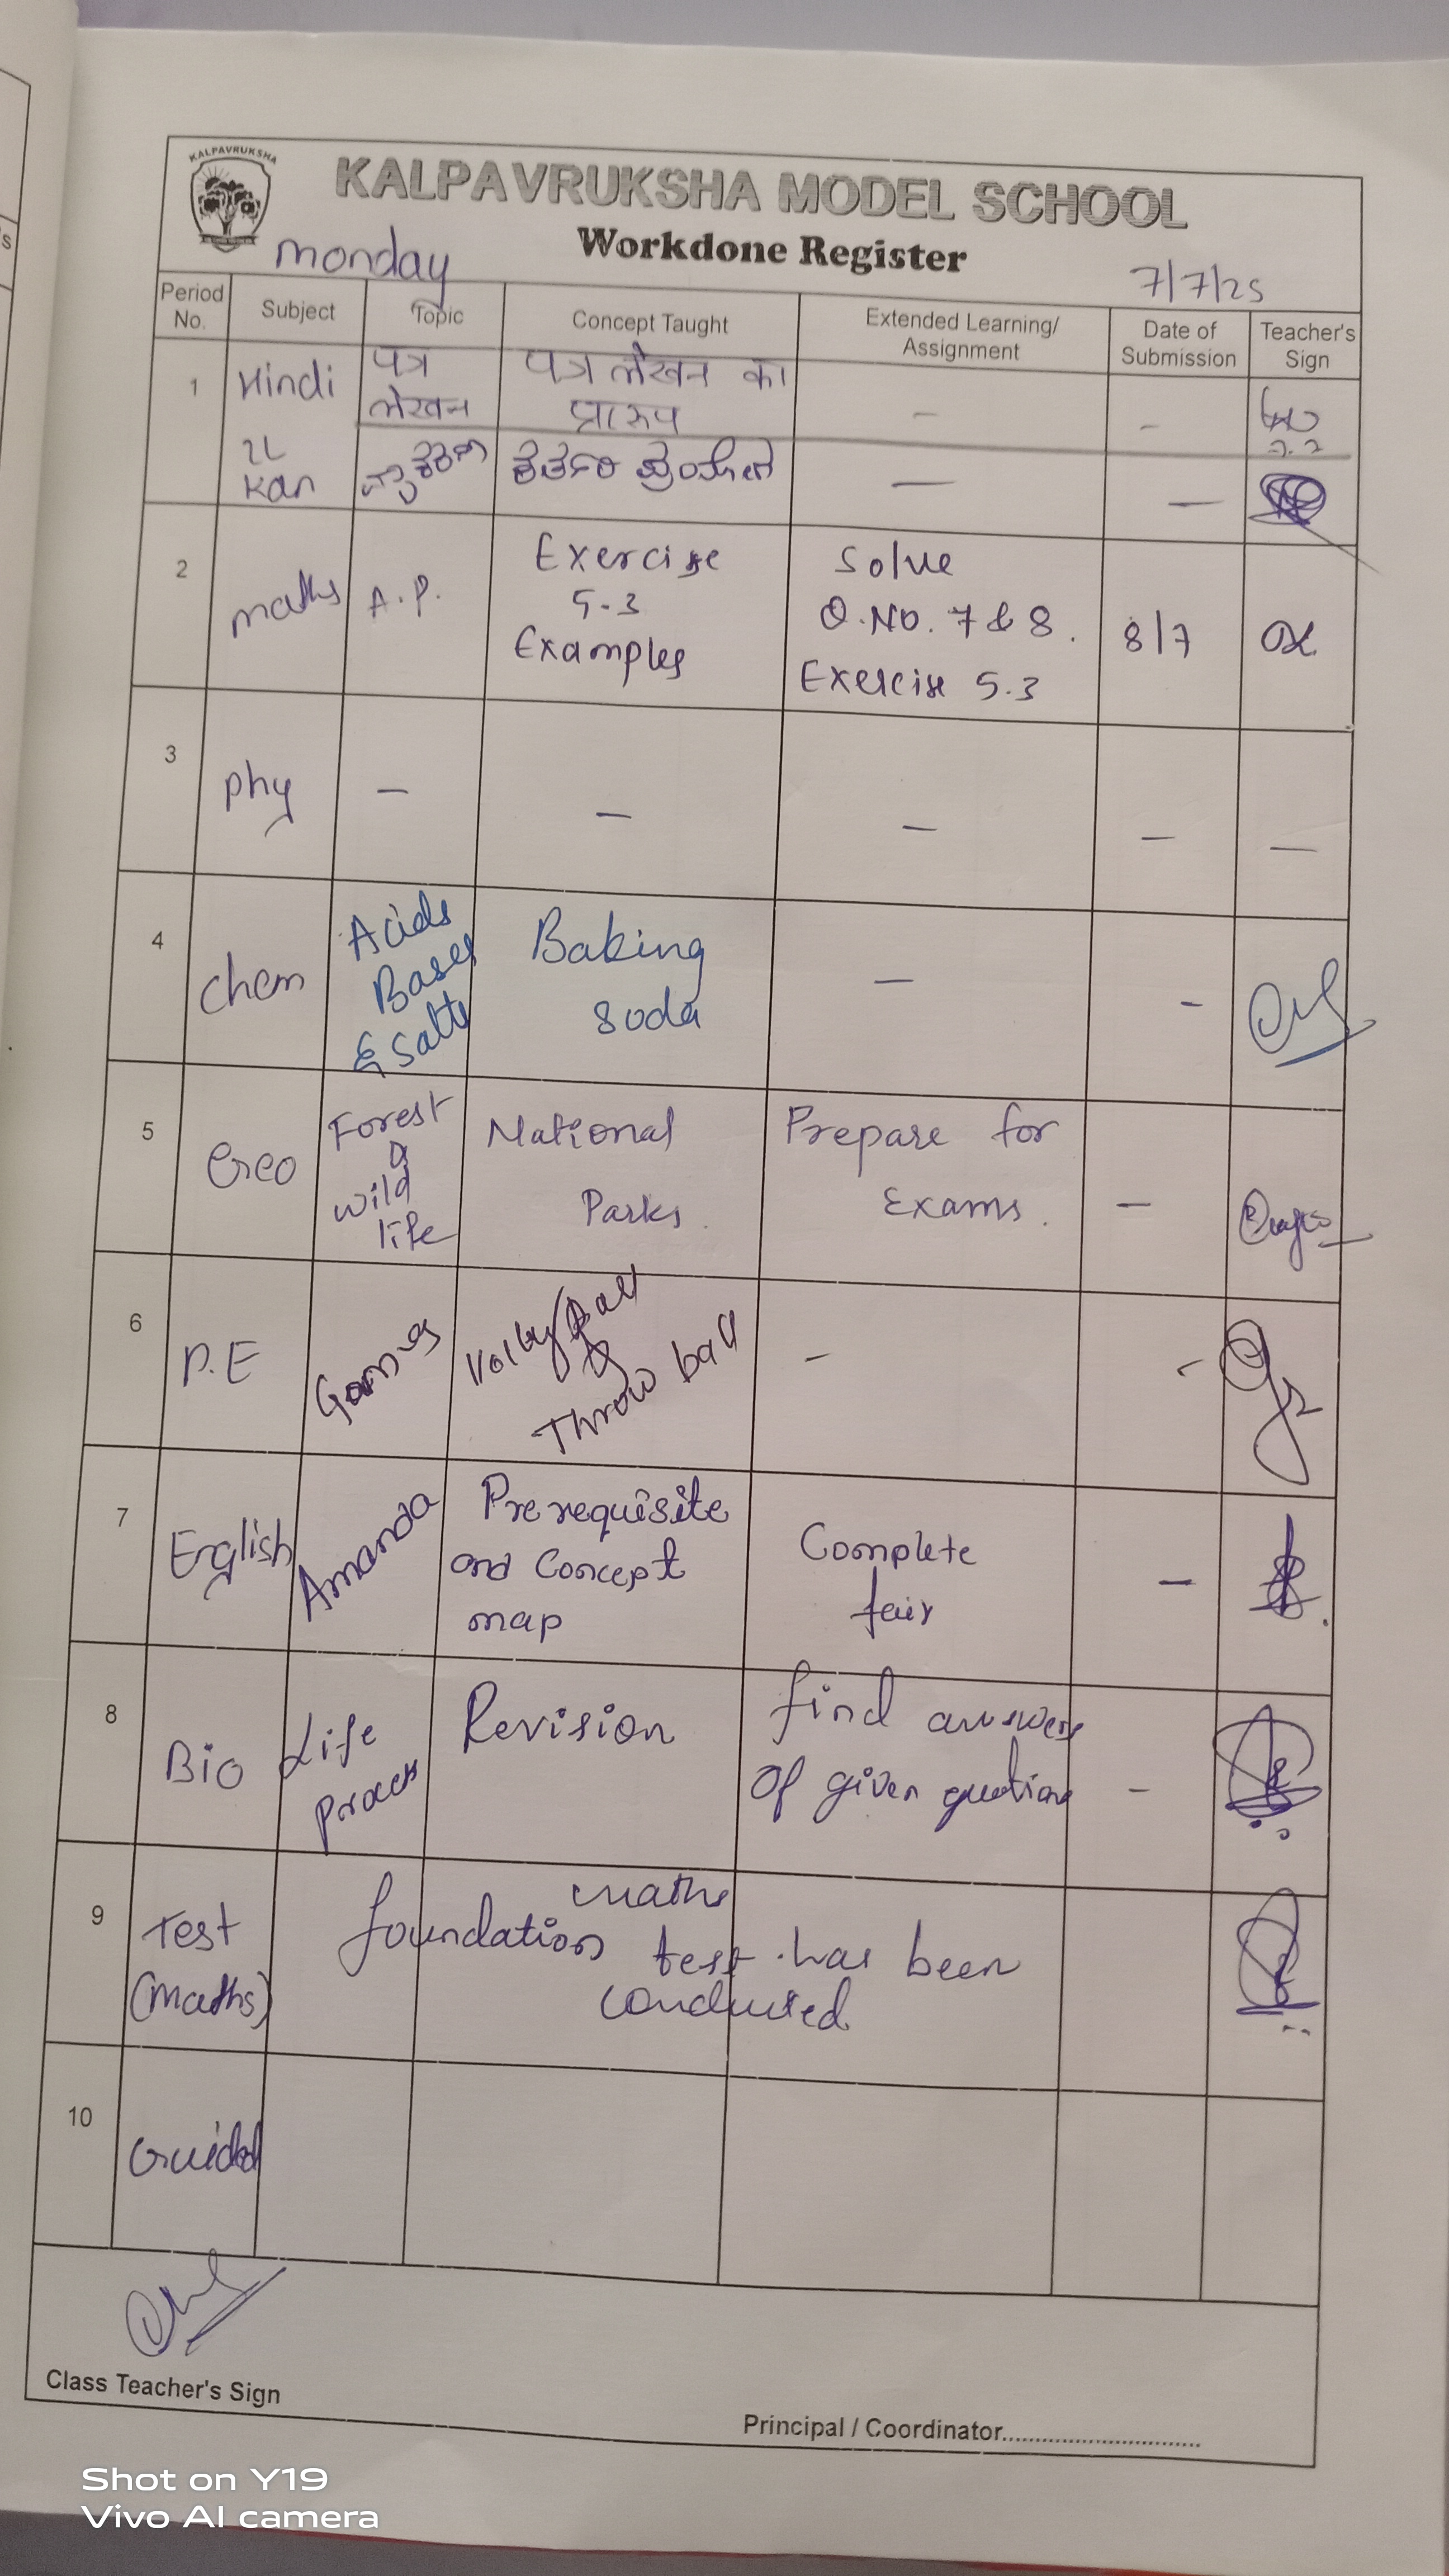 KALPAVRUKSHA
KALPAVRUKSHA MODEL SCHOOL
Workdone Register
Monday
7/7/25
Period No. Subject Topic Concept Taught Extended Learning/ Assignment Date of Submission Teacher's Sign
1 Hindi पत्र लेखन पत्र लेखन का प्रारुप - -
2L Kan — —
2 maths A.P. Exercise 5.3 Examples Solve Q.NO. 7 & 8. Exercise 5.3 8/7
3 phy — — — — —
4 Chem Acids Bases & Salts Baking soda — -
5 Geo Forest & wild life National Parks. Prepare for Exams. —
6 P.E Games Volley Ball & Throw ball - -
7 English Amanda Prerequisite and Concept map Complete fair —
8 Bio Life process Revision find answers of given questions -
9 Test (Maths) foundation maths test has been conducted
10 Guided
Class Teacher's Sign
Principal / Coordinator..............................
Shot on Y19
Vivo AI camera